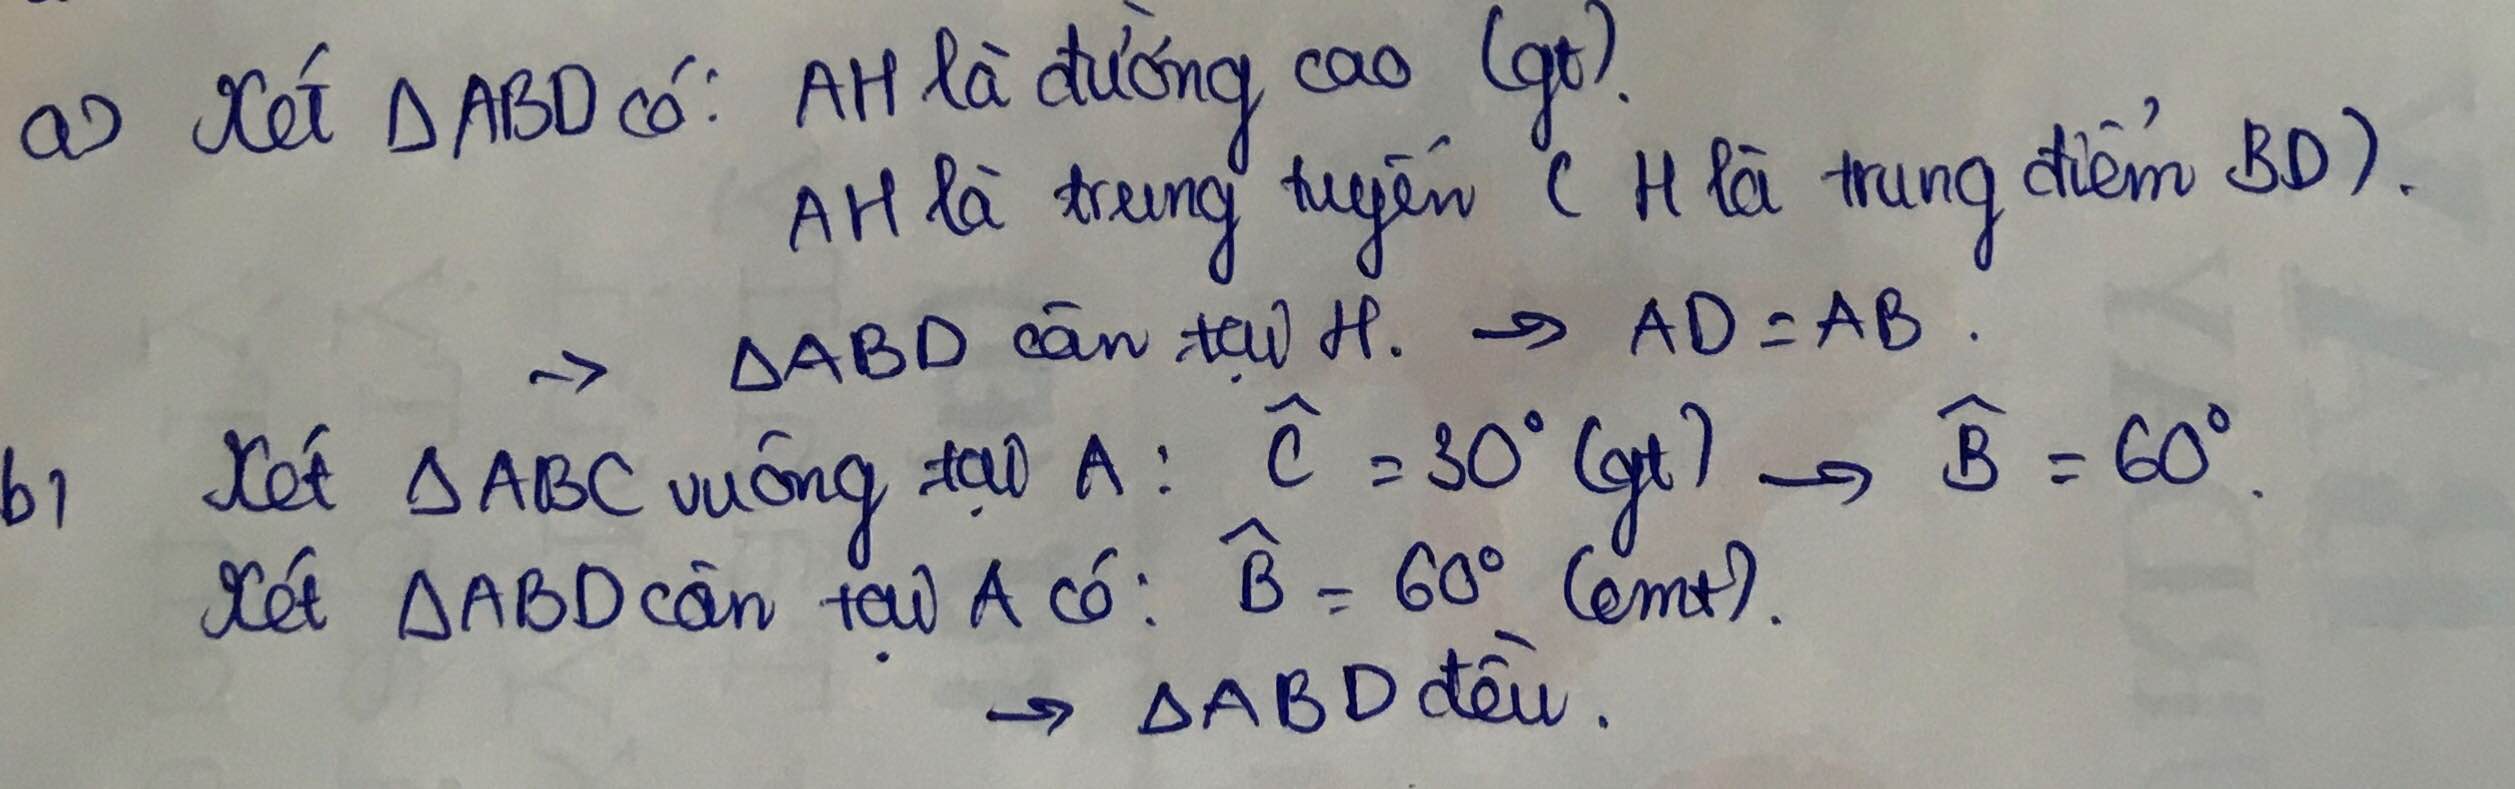 a) Xét ΔABD có: AH là đường cao (gt).
AH là trung tuyến (H là trung điểm BD).
→ ΔABD cân tại H. → AD = AB.
b) Xét ΔABC vuông tại A: Ĉ = 30° (gt) → B̂ = 60°.
Xét ΔABD cân tại A có: B̂ = 60° (cmt).
→ ΔABD đều.